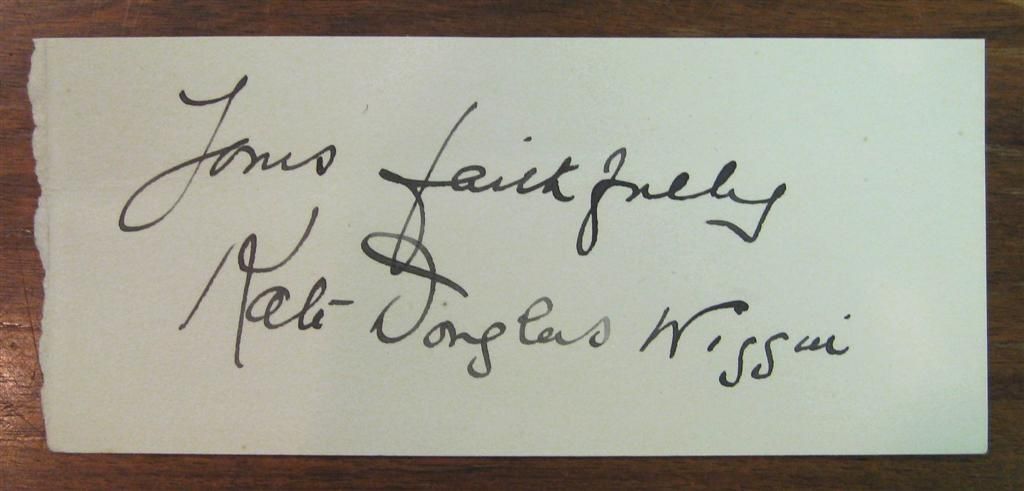 Yours faithfully
Kate Douglas Wiggin